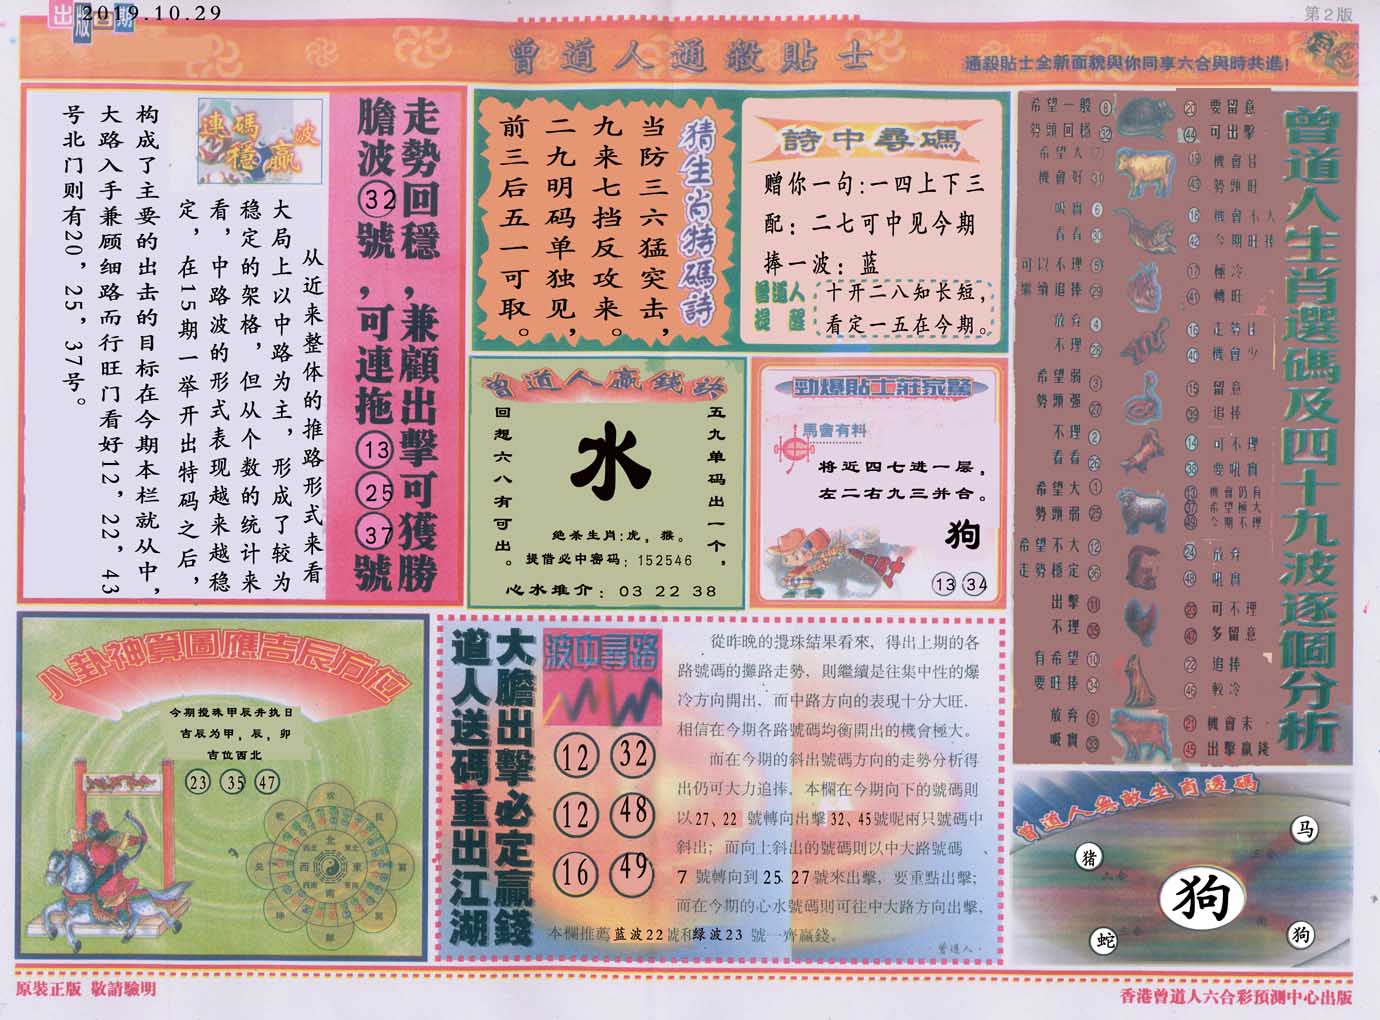 出版日期
2019.10.29
第2版
曾道人通殺貼士
通殺貼士全新面貌與你同享六合與時共進!
走勢回穩,兼顧出擊可獲勝
膽波32號,可連拖13 25 37號
連碼波
穩贏
从近来整体的推路形式来看
大局上以中路为主，形成了较为
稳定的架格，但从个数的统计来
看，中路波的形式表现越来越稳
定，在15期一举开出特码之后，
构成了主要的出击的目标在今期本栏就从中，
大路入手兼顾细路而行旺门看好12，22，43
号北门则有20，25，37号。
猜生肖特碼詩
当防三六猛突击，
九来七挡反攻来。
二九明码单独见，
前三后五一可取。
詩中尋碼
赠你一句:一四上下三
配：二七可中见今期
捧一波：蓝
曾道人
提醒
十开二八知长短，
看定一五在今期。
曾道人贏錢詩
五九单码出一个，
回想六八有可出。
水
绝杀生肖:虎，猴。
提借必中密码：152546
心水推介：03 22 38
勁爆貼士莊家驚
馬會有料
将近四七进一层，
左二右九三并合。
狗
13 34
曾道人生肖選碼及四十九波逐個分析
希望一般 8
勢頭回穩 32
20 要留意
44 可出擊
希望大 7
機會好 31
19 機會佳
43 勢頭旺
吼實 6
看看 30
18 機會不大
42 今期旺捧
可以不理 5
繼續追捧 29
17 極冷
41 轉旺
放弃 4
不理 28
16
40 機會少
希望弱 3
勢頭强 27
15 留意
39 追捧
不理 2
看看 26
14 可不理
38 要吼實
希望大 1
勢頭弱 25
13 機會仍有
37 希望極大
49 今期不理
希望不大 12
走勢穩定 36
24 放弃
48 吼實
出擊 11
不理 35
23 可不理
47 多留意
有希望 10
要旺捧 34
22 追捧
46 較冷
放弃 9
吼實 33
21 機會未
45 出擊贏錢
八卦神算圖應吉辰方位
今期搅珠甲辰并执日
吉辰为甲，辰，卯
吉位西北
23 35 47
北
西
東
南
大膽出擊必定贏錢
道人送碼重出江湖
波中尋路
12 32
12 48
16 49
從昨晚的攪珠結果看來，得出上期的各
路號碼的攤路走勢，則繼續是往集中性的爆
冷方向開出，而中路方向的表現十分大旺．
相信在今期各路號碼均衡開出的機會極大。
而在今期的斜出號碼方向的走勢分析得
出仍可大力追捧，本欄在今期向下的號碼則
以27、22 號轉向出擊32、45號呢兩只號碼中
斜出；而向上斜出的號碼則以中大路號碼
7 號轉向到25 27號來出擊，要重點出擊；
而在今期的心水號碼則可往中大路方向出擊，
本欄推薦蓝波22號和绿波23 號一齊贏錢。
曾道人．
曾道人無敵生肖透碼
马
猪
狗
蛇
狗
原裝正版 敬請驗明
香港曾道人六合彩預測中心出版